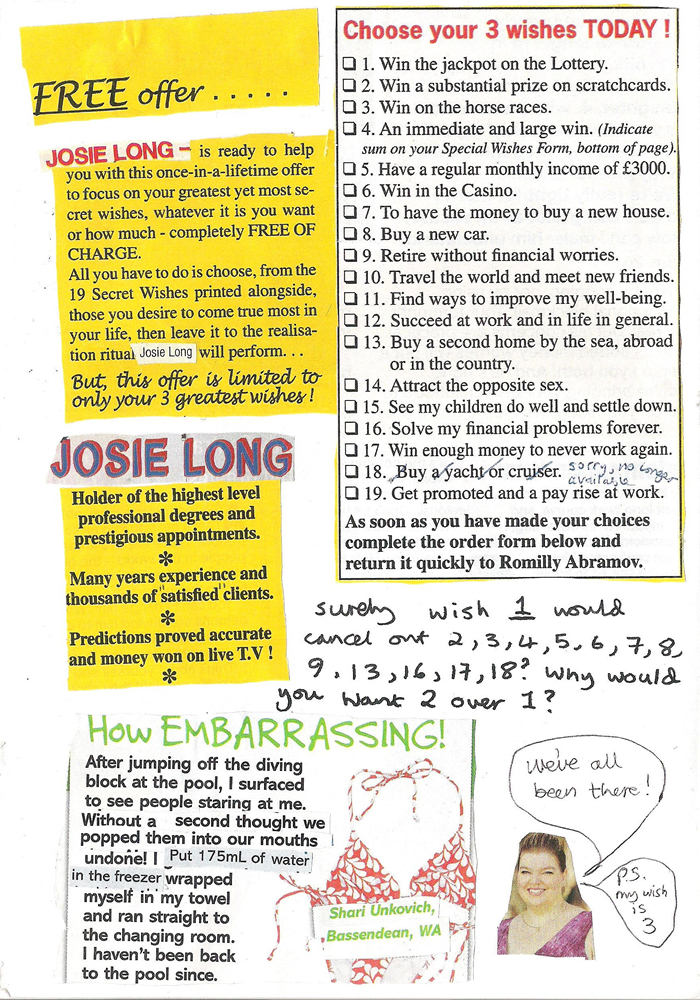 FREE offer . . . . .
JOSIE LONG – is ready to help
you with this once-in-a-lifetime offer
to focus on your greatest yet most se-
cret wishes, whatever it is you want
or how much - completely FREE OF
CHARGE.
All you have to do is choose, from the
19 Secret Wishes printed alongside,
those you desire to come true most in
your life, then leave it to the realisa-
tion ritual Josie Long will perform. . .
But, this offer is limited to
only your 3 greatest wishes !
JOSIE LONG
Holder of the highest level
professional degrees and
prestigious appointments.
*
Many years experience and
thousands of "satisfied" clients.
*
Predictions proved accurate
and money won on live T.V !
*
Choose your 3 wishes TODAY !
❑ 1. Win the jackpot on the Lottery.
❑ 2. Win a substantial prize on scratchcards.
❑ 3. Win on the horse races.
❑ 4. An immediate and large win. (Indicate
sum on your Special Wishes Form, bottom of page).
❑ 5. Have a regular monthly income of £3000.
❑ 6. Win in the Casino.
❑ 7. To have the money to buy a new house.
❑ 8. Buy a new car.
❑ 9. Retire without financial worries.
❑ 10. Travel the world and meet new friends.
❑ 11. Find ways to improve my well-being.
❑ 12. Succeed at work and in life in general.
❑ 13. Buy a second home by the sea, abroad
or in the country.
❑ 14. Attract the opposite sex.
❑ 15. See my children do well and settle down.
❑ 16. Solve my financial problems forever.
❑ 17. Win enough money to never work again.
❑ 18. Buy a yacht or cruiser. sorry, no longer
available
❑ 19. Get promoted and a pay rise at work.
As soon as you have made your choices
complete the order form below and
return it quickly to Romilly Abramov.
surely wish 1 would
cancel out 2, 3, 4, 5, 6, 7, 8,
9, 13, 16, 17, 18? Why would
you want 2 over 1?
How EMBARRASSING!
After jumping off the diving
block at the pool, I surfaced
to see people staring at me.
Without a second thought we
popped them into our mouths
undone! I Put 175mL of water
in the freezer wrapped
myself in my towel
and ran straight to
the changing room.
I haven't been back
to the pool since.
Shari Unkovich,
Bassendean, WA
we've all
been there!
P.S.
my wish
is
3